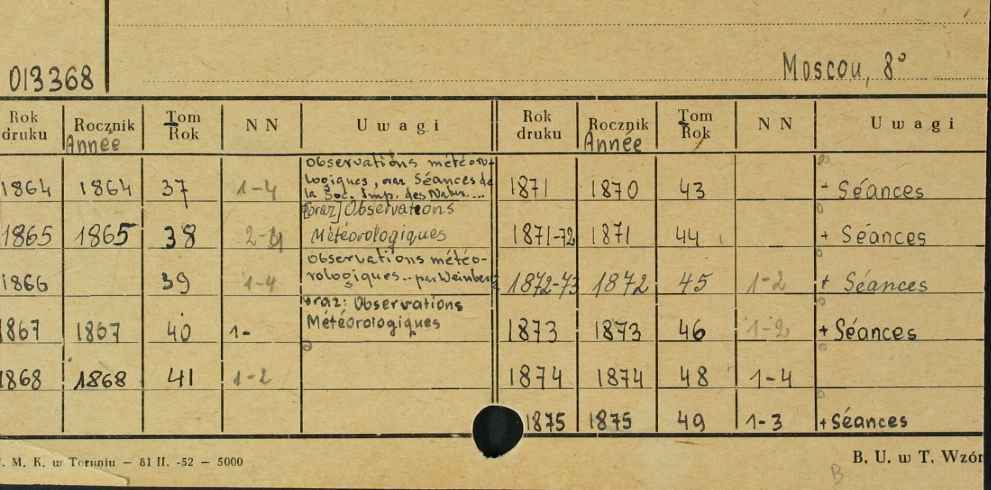 Moscou, 8°
013368
Rok druku Rocznik Année Tom Rok N N Uwagi Rok druku Rocznik Année Tom Rok N N Uwagi
1864 1864 37 1-4 Observations météorologiques, oraz Séances de la Soc. Imp. des Natur.... 1871 1870 43 + Séances
1865 1865 38 [oraz] Observations Météorologiques 1871-72 1871 44 + Séances
1866 39 1-4 Observations météorologiques... par Weinberg 1872-73 1872 45 1-2 + Séances
1867 1867 40 1- oraz: Observations Météorologiques 1873 1873 46 1-2 + Séances
1868 1868 41 1-2 1874 1874 48 1-4
1875 1875 49 1-3 + Séances
. M. K. w Toruniu — 81 II. -52 — 5000 B. U. w T. Wzór
B